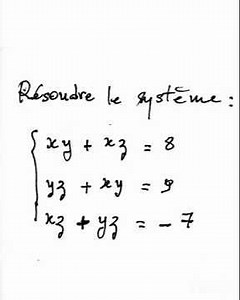 Résoudre le système :
xy + xz = 8
yz + xy = 9
xz + yz = -7